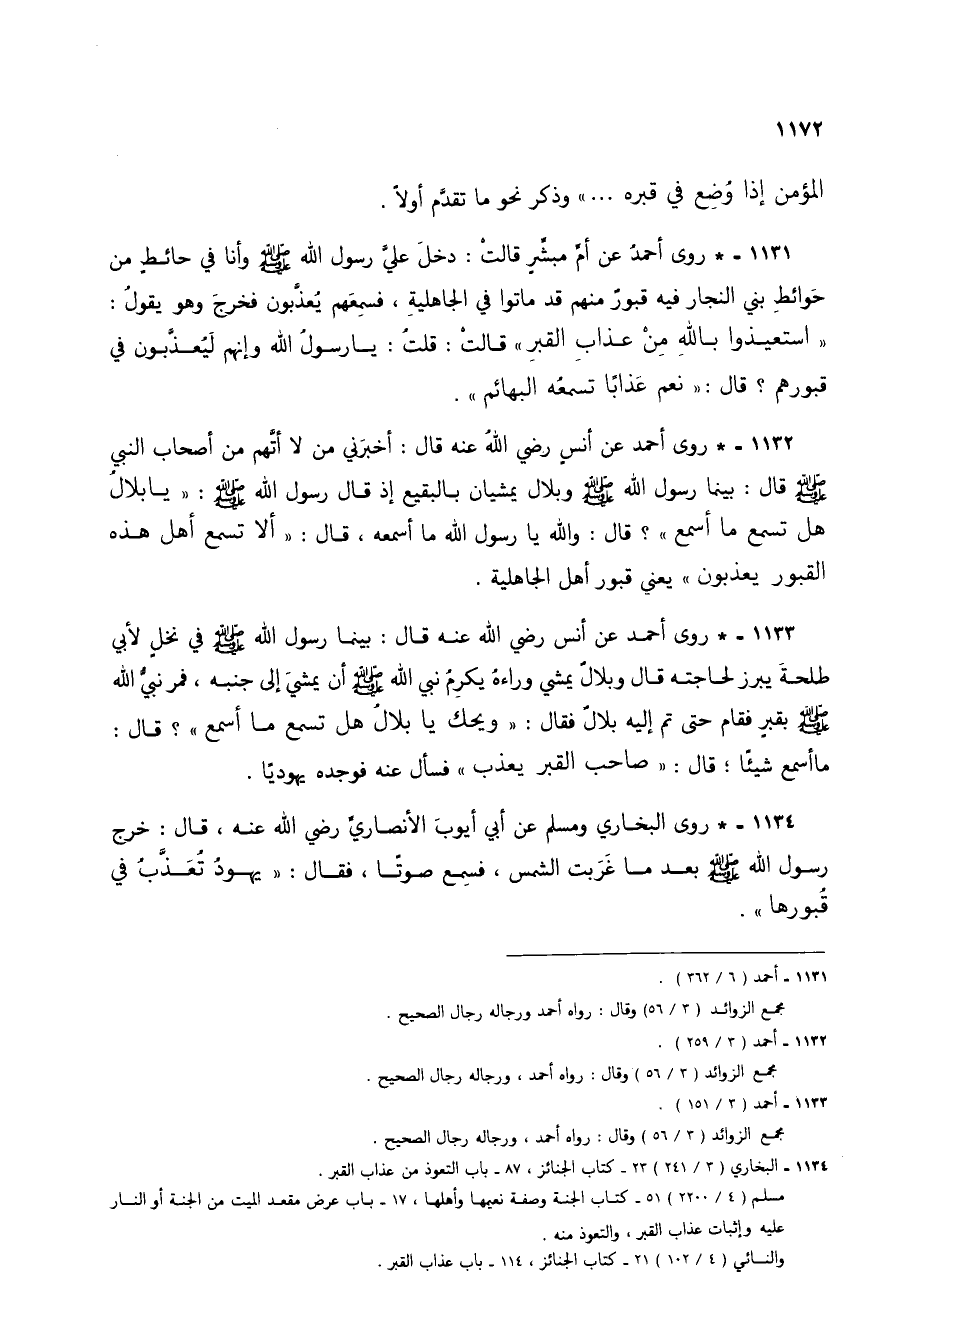 ١١٧٢
المؤمن إذا وُضِع في قبره ...» وذكر نحو ما تقدَّم أولاً .
١١٣١ - * روى أحمدُ عن أمِّ مبشِّرٍ قالتْ : دخلَ عليَّ رسول الله ﷺ وأنا في حائـطٍ من
حَوائطِ بني النجار فيه قبورٌ منهم قد ماتوا في الجاهليةِ ، فسمِعَهم يُعذَّبون فخرجَ وهو يقولُ :
« استعيـذوا بـاللهِ مِنْ عـذابِ القبرِ » قـالتْ : قلتُ : يـارسولُ الله وإنهم لَيُعـذَّبـون في
قبورهم ؟ قال :« نعم عَذابًا تسمعُه البهائم » .
١١٣٢ - * روى أحمد عن أنسٍ رضي اللهُ عنه قال : أخبرَني من لا أتَّهم من أصحاب النبي
ﷺ قال : بينما رسول الله ﷺ وبلال يمشيان بـالبقيع إذ قـال رسول الله ﷺ : « يـابلالُ
هل تسمع ما أسمع » ؟ قال : والله يا رسول الله ما أسمعه ، قـال : « ألا تسمع أهل هـذه
القبور يعذبون » يعني قبور أهل الجاهلية .
١١٣٣ - * روى أحمـد عن أنس رضي الله عنـه قـال : بينمـا رسول الله ﷺ في نخلٍ لأبي
طلحـةَ يبرز لحـاجتـه قـال وبلالٌ يمشي وراءهُ يكرمُ نبي الله ﷺ أن يمشيَ إلى جنبـه ، فمر نبيُّ الله
ﷺ بقبرٍ فقام حتى تم إليه بلالٌ فقال : « ويحك يا بلالُ هل تسمع مـا أسمع » ؟ قـال :
ماأسمع شيئًا ؛ قال :« صاحب القبر يعذب » فسأل عنه فوجده يهوديًا .
١١٣٤ - * روى البخـاري ومسلم عن أبي أيوبَ الأنصاريِّ رضي الله عنـه ، قـال : خرج
رسول الله ﷺ بعـد مـا غَرَبت الشمس ، فسمع صوتًـا ، فقـال : « يهـودُ تُعَـذَّبُ في
قُبورها » .
١١٣١ - أحمد ( ٦ / ٣٦٢ ) .
مجمع الزوائـد ( ٣ / ٥٦) وقال : رواه أحمد ورجاله رجال الصحيح .
١١٣٢ - أحمد ( ٣ / ٢٥٩ ) .
مجمع الزوائد ( ٣ / ٥٦ ) وقال : رواه أحمد ، ورجاله رجال الصحيح .
١١٣٣ - أحمد ( ٣ / ١٥١ ) .
مجمع الزوائد ( ٣ / ٥٦ ) وقال : رواه أحمد ، ورجاله رجال الصحيح .
١١٣٤ - البخاري ( ٣ / ٢٤١ ) ٢٣ - كتاب الجنائز ، ٨٧ - باب التعوذ من عذاب القبر .
مسلم ( ٤ / ٢٢٠٠ ) ٥١ - كتـاب الجنـة وصفـة نعيمهـا وأهلهـا ، ١٧ - بـاب عرض مقعـد الميت من الجنـة أو النـار
عليه وإثبات عذاب القبر ، والتعوذ منه .
والنسـائي ( ٤ / ١٠٢ ) ٢١ - كتاب الجنائز ، ١١٤ - باب عذاب القبر .